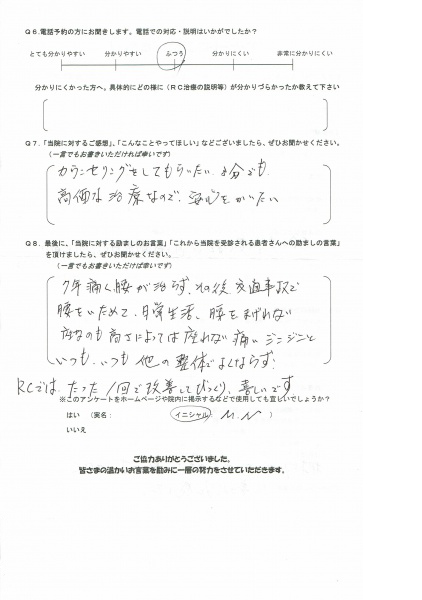 Q6.電話予約の方にお聞きします。電話での対応・説明はいかがでしたか?
とても分かりやすい 分かりやすい ふつう 分かりにくい 非常に分かりにくい
分かりにくかった方へ。具体的にどの様に(RC治療の説明等)が分かりづらかったか教えて下さい
Q7.「当院に対するご感想」、「こんなことやってほしい」などございましたら、ぜひお聞かせください。
(一言でもお書きいただければ幸いです)
カウンセリングをしてもらいたい 分でも
高価な治療なので、安心をかいたい
Q8.最後に、「当院に対する励ましのお言葉」「これから当院を受診される患者さんへの励ましの言葉」
を頂けましたら、ぜひお聞かせください。
(一言でもお書きいただけば幸いです)
7年痛く腰が治らず、その後 交通事故で
腰をいためて、日常生活、腰をまげれない
座るのも高さによっては座れない 痛い ジンジンと
いつも、いつも 他の整体でよくならず
RCでは、たった1回で改善してびっくり、喜しいです
※このアンケートをホームページや院内に掲示するなどで使用しても宜しいでしょうか?
はい (実名: イニシャル: M.N )
いいえ
ご協力ありがとうございました。
皆さまの温かいお言葉を励みに一層の努力をさせていただきます。